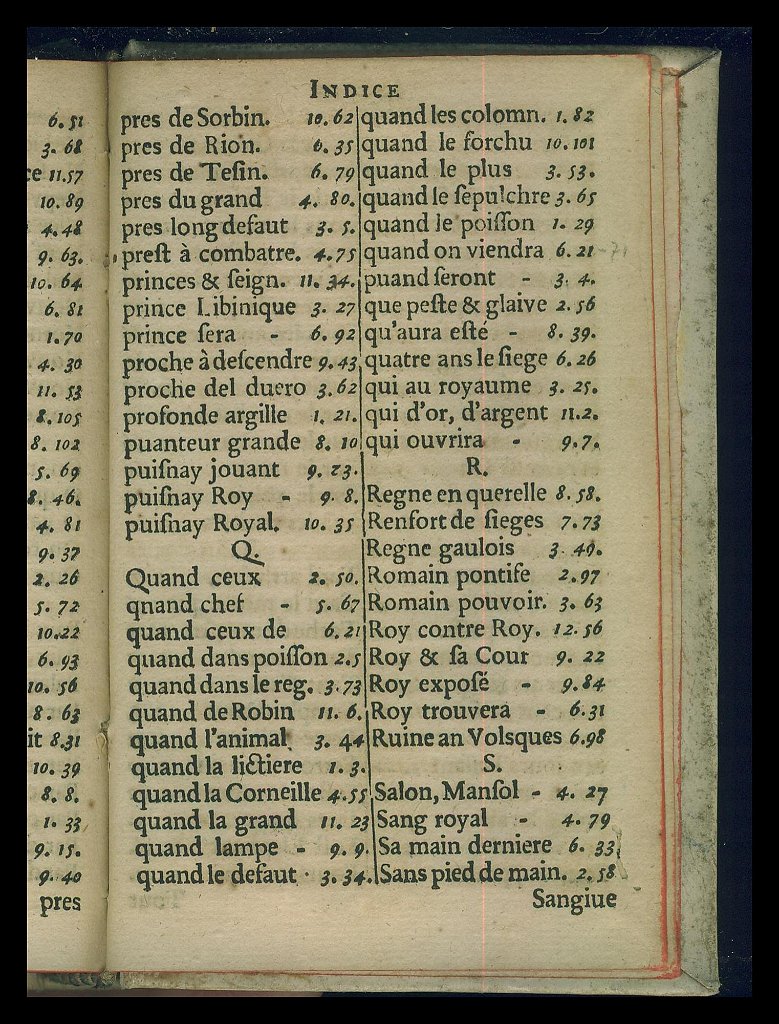 6.51
3. 68
ce 11.57
10. 89
4.48
9. 63.
10. 64
6. 81
1.70
4. 30
11. 53
8.105
8. 102
5. 69
8. 46.
4. 81
9. 37
2. 26
5. 72
10.22
6. 93
10. 56
8. 63
it 8.31
10. 39
8. 8.
1. 33
9. 15.
9. 40
pres
INDICE
pres de Sorbin. 10. 62
pres de Rion. 6. 35
pres de Teſin. 6. 79
pres du grand 4. 80.
pres long defaut 3. 5.
preſt à combatre. 4.75
princes & ſeign. 11. 34.
prince Libinique 3. 27
prince ſera - 6. 92
proche à deſcendre 9. 43
proche del duero 3. 62
profonde argille 1. 21.
puanteur grande 8. 10
puiſnay jouant 9. 23.
puiſnay Roy - 9. 8.
puiſnay Royal. 10. 35
Q.
Quand ceux 2. 50.
qnand chef - 5. 67
quand ceux de 6. 21
quand dans poiſſon 2.5
quand dans le reg. 3.73
quand de Robin 11. 6.
quand l'animal 3. 44
quand la lictiere 1. 3.
quand la Corneille 4.55
quand la grand 11. 23
quand lampe - 9. 9.
quand le defaut 3. 34.
quand les colomn. 1. 82
quand le forchu 10. 101
quand le plus 3. 53.
quand le ſepulchre 3. 65
quand le poiſſon 1. 29
quand on viendra 6. 21
puand ſeront - 3. 4.
que peſte & glaive 2. 56
qu'aura eſté - 8. 39.
quatre ans le ſiege 6. 26
qui au royaume 3. 25.
qui d'or, d'argent 11.2.
qui ouvrira - 9.7.
R.
Regne en querelle 8. 58.
Renfort de ſieges 7. 73
Regne gaulois 3. 49.
Romain pontife 2.97
Romain pouvoir. 3. 63
Roy contre Roy. 12. 56
Roy & ſa Cour 9. 22
Roy expoſé - 9.84
Roy trouvera - 6.31
Ruine an Volsques 6.98
S.
Salon, Manſol - 4. 27
Sang royal - 4. 79
Sa main derniere 6. 33
Sans pied de main. 2. 58
Sangiue